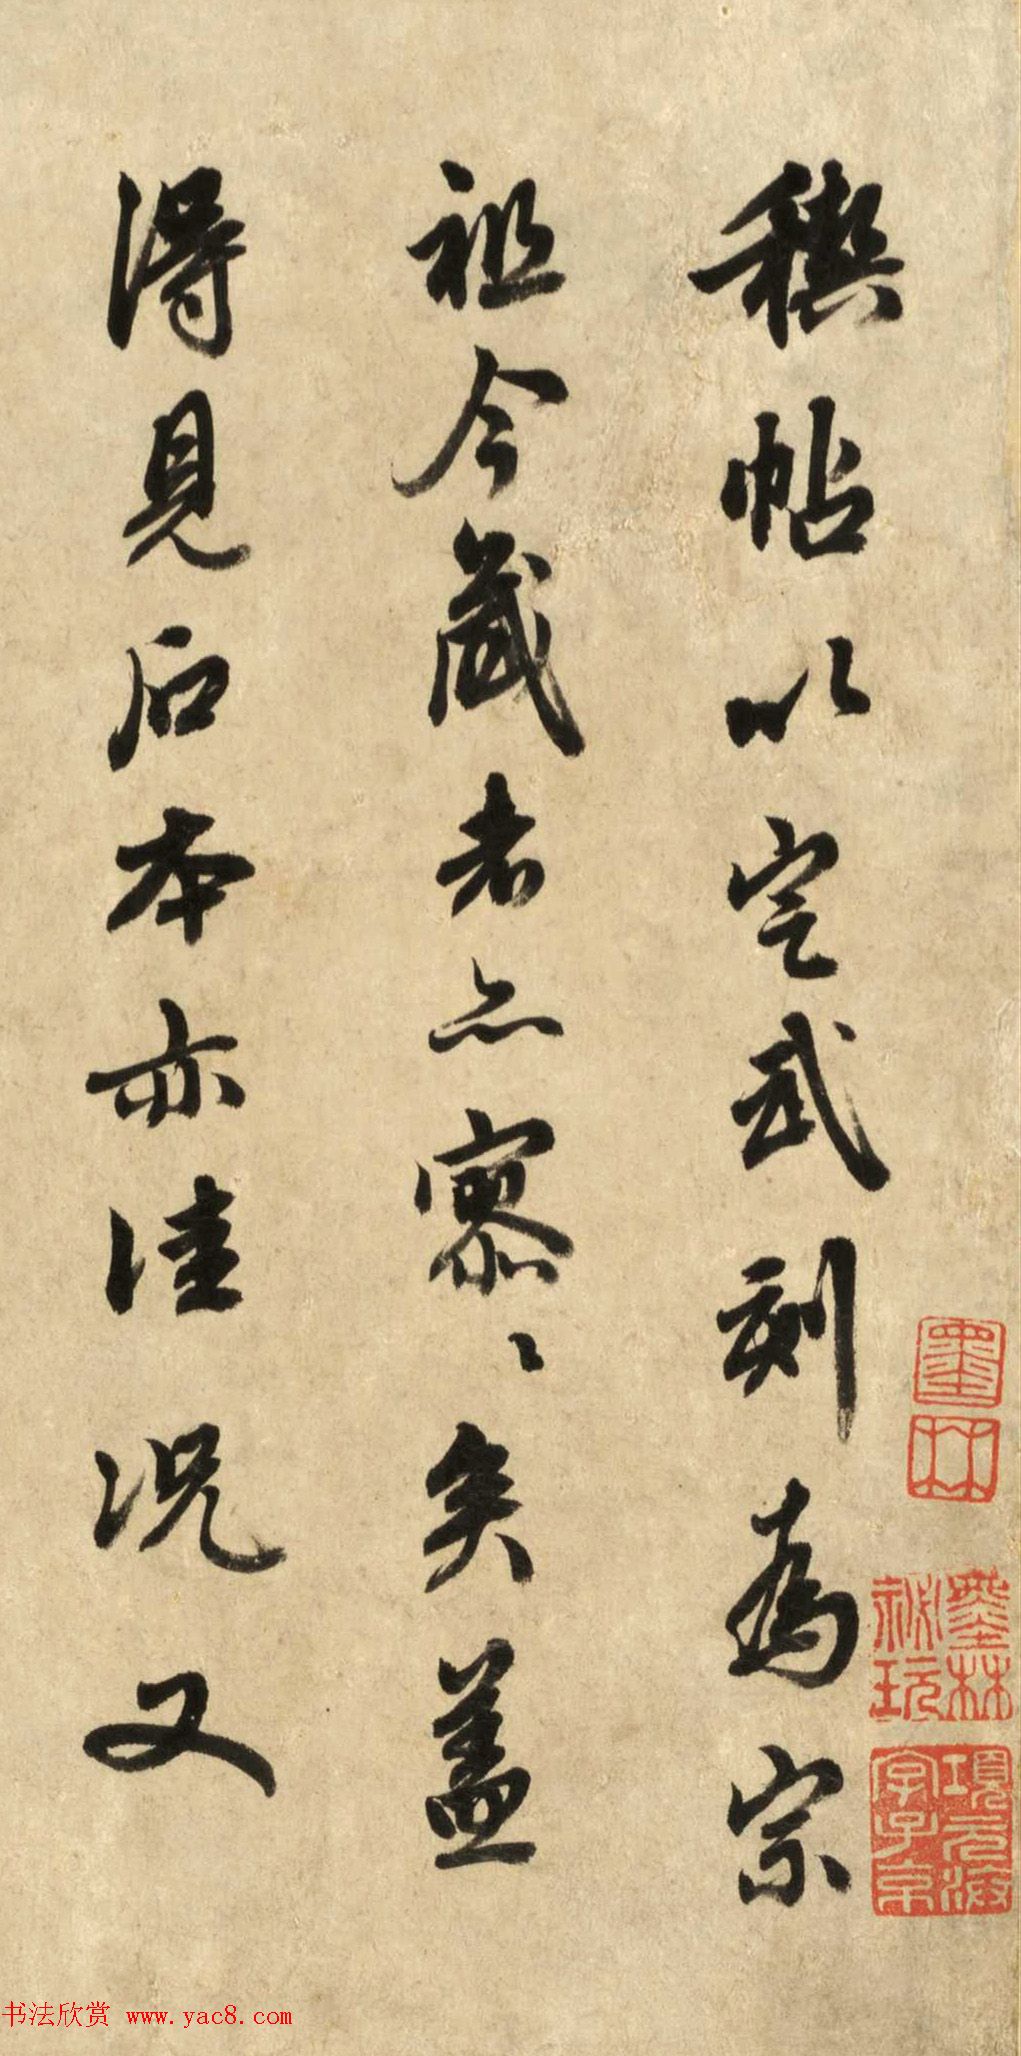 稧帖以定武刻為宗
祖今藏者亦寥〻矣蓋
得見石本亦佳況又
墨林
墨林祕玩
項元汴字子京
书法欣赏 www.yac8.com